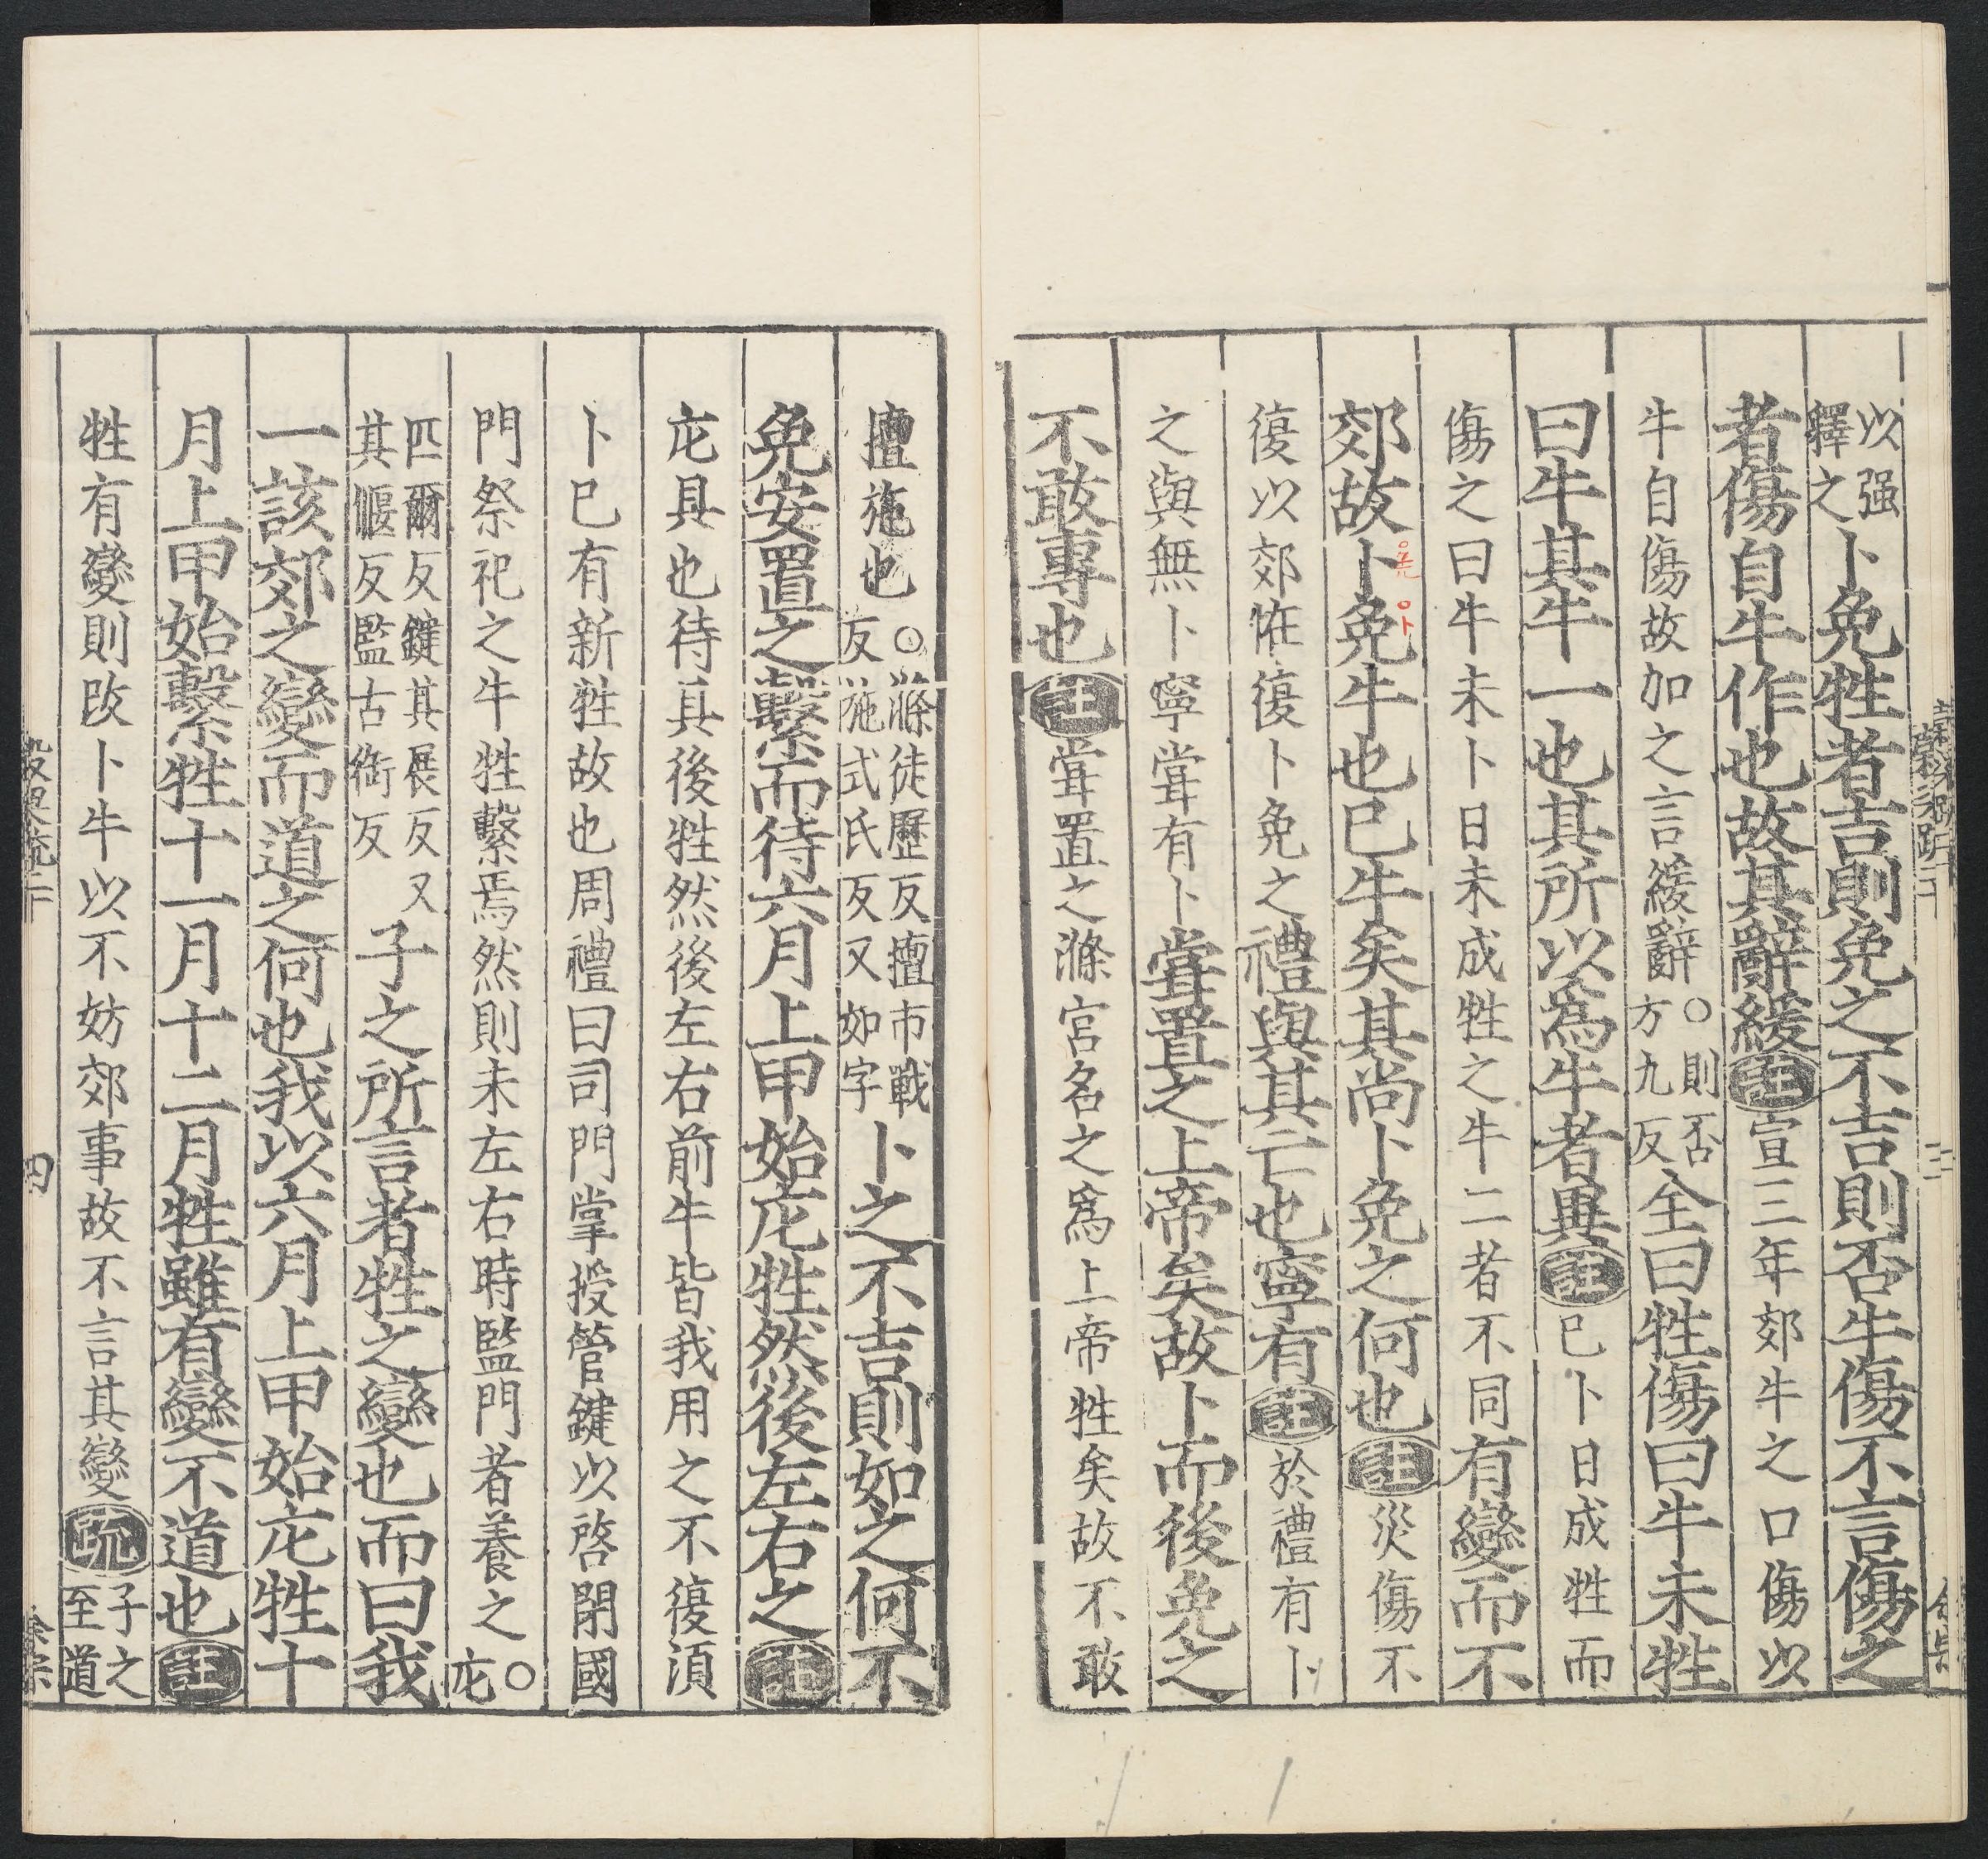 以强
釋之
卜免牲者吉則免之不吉則否牛傷不言傷之
者傷自牛作也故其辭緩註宣三年郊牛之口傷以
牛自傷故加之言緩辭○則否
方九反
全曰牲傷曰牛未牲
曰牛其牛一也其所以爲牛者異註已卜日成牲而
傷之曰牛未卜日未成牲之牛二者不同有變而不
郊故卜免牛也已牛矣其尚卜免之何也註災傷不
復以郊恠復卜免之禮與其亡也寧有註於禮有卜
之與無卜寧甞有卜甞置之上帝矣故卜而後免之
不敢專也註甞置之滌宮名之爲上帝牲矣故不敢
擅施也○滌徒歷反擅市戰
反施式氏反又如字
卜之不吉則如之何不
免安置之繫而待六月上甲始庀牲然後左右之註
庀具也待具後牲然後左右前牛皆我用之不復湏
卜已有新牲故也周禮曰司門掌授管鍵以啓閉國
門祭祀之牛牲繫焉然則未左右時監門者養之○
庀
匹爾反鍵其展反又
其偃反監古銜反
子之所言者牲之變也而曰我
一該郊之變而道之何也我以六月上甲始庀牲十
月上甲始繫牲十一月十二月牲雖有變不道也註
牲有變則改卜牛以不妨郊事故不言其變疏子之
至道